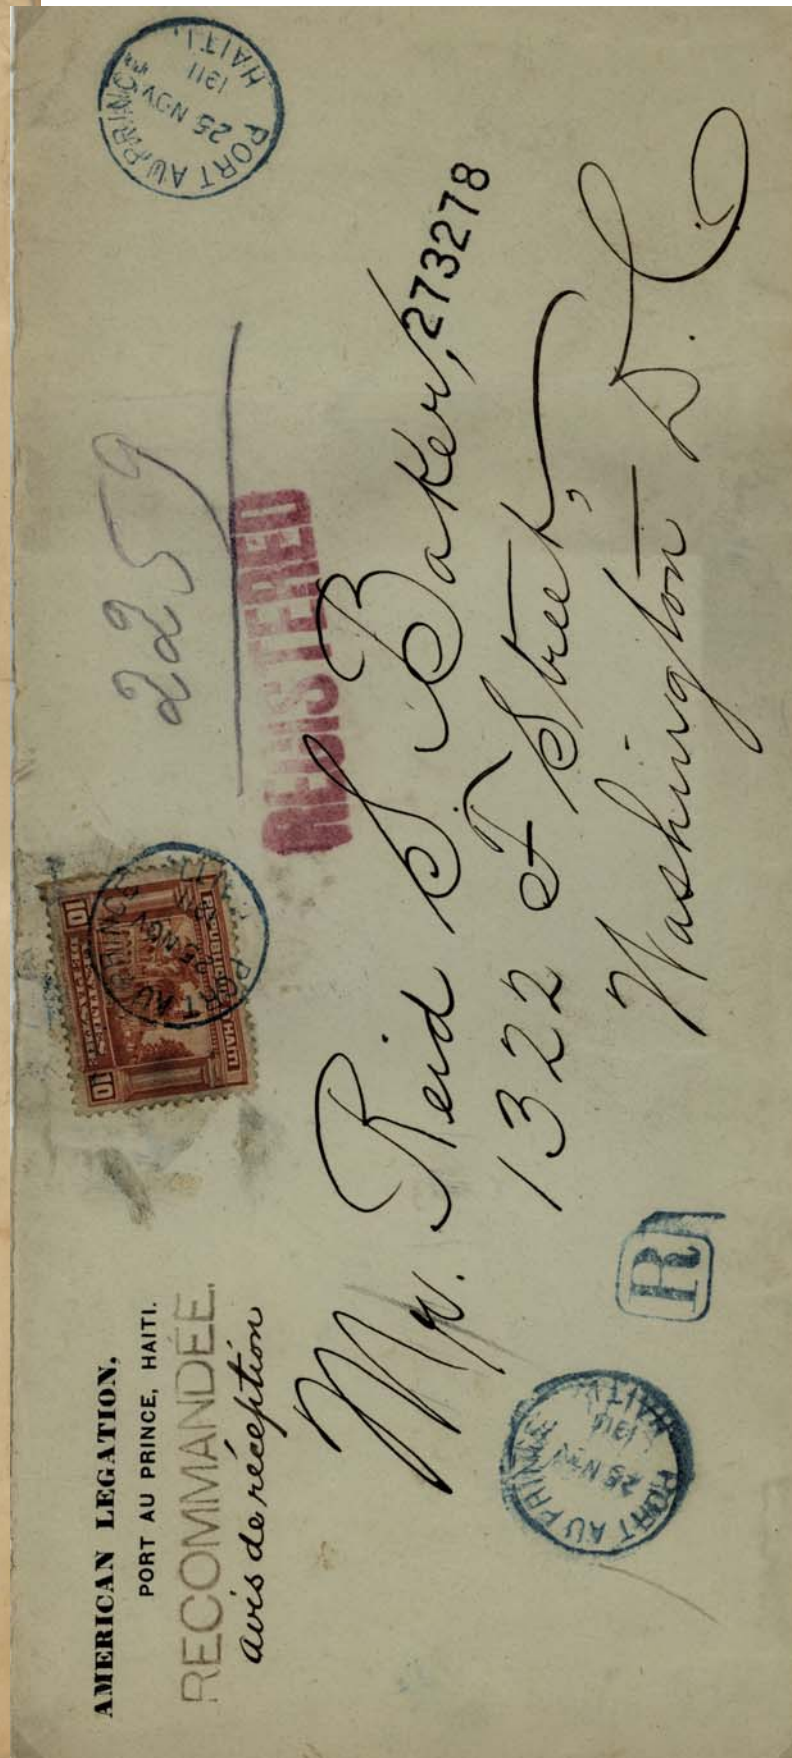 AMERICAN LEGATION,
PORT AU PRINCE, HAITI.
RECOMMANDÉE.
avis de réception
10 10
REPUBLIQUE HAITI
PORT AU PRINCE
25 NOV
2259
REGISTERED
PORT AU PRINCE
25 NOV
1911
HAITI
273278
Mr. Reid S Baker,
1322 F Street,
Washington D.C.
PORT AU PRINCE
25 NOV
HAITI
R